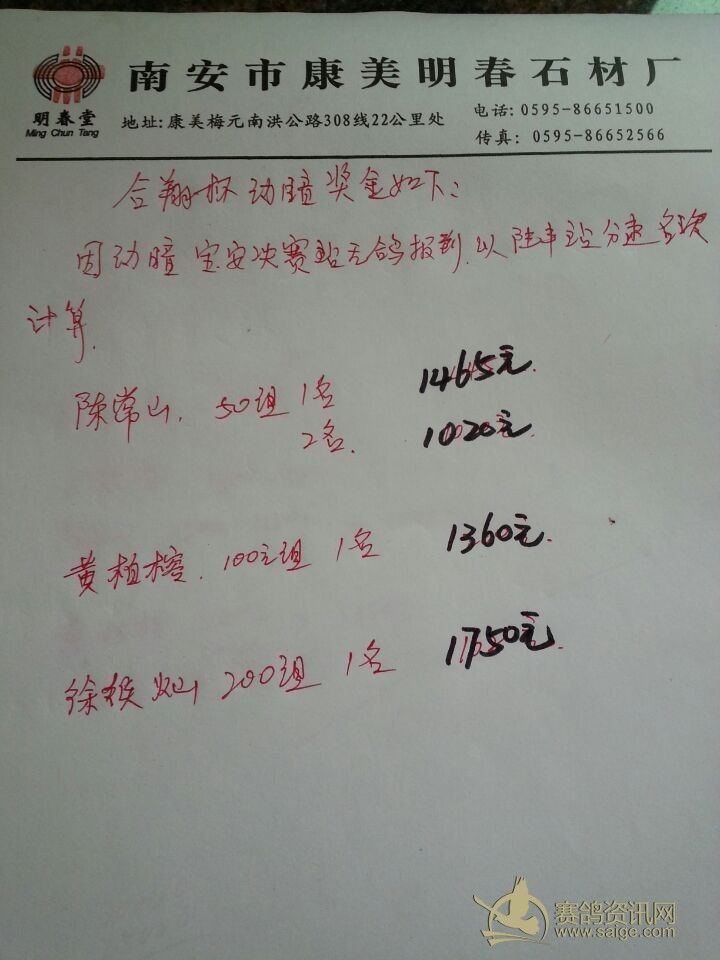 南安市康美明春石材厂
明春堂
Ming Chun Tang
地址:康美梅元南洪公路308线22公里处
电话:0595-86651500
传真:0595-86652566
合翔杯动暗奖金如下:
因动暗宝安决赛站无鸽报到,以陆丰站分速名次
计算.
陈常山. 50组 1名 1465元.
2名. 1020元.
黄植榕. 100元组 1名 1360元.
徐灿 200组 1名 1750元.
赛鸽资讯网
www.saige.com